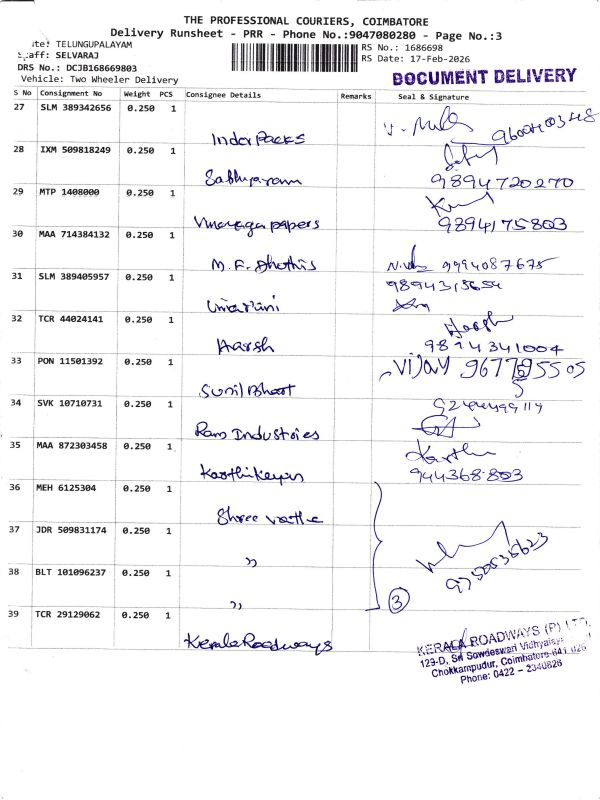 THE PROFESSIONAL COURIERS, COIMBATORE
Delivery Runsheet - PRR - Phone No.:9047080280 - Page No.:3
te: TELUNGUPALAYAM
RS No.: 1686698
aff: SELVARAJ
RS Date: 17-Feb-2026
DRS No.: DCJB168669803
Vehicle: Two Wheeler Delivery
DOCUMENT DELIVERY
S No Consignment No Weight PCS Consignee Details Remarks Seal & Signature
27 SLM 389342656 0.250 1
Indor Packs
28 IXM 509818249 0.250 1
9894720270
29 MTP 1408000 0.250 1
Vinayaga papers 9894175803
30 MAA 714384132 0.250 1
M.F. Dhothis 9994087675
31 SLM 389405957 0.250 1
Umarani
32 TCR 44024141 0.250 1 Harsh
Harsh 9814341004
33 PON 11501392 0.250 1 Vijay
Sunil Bhoot
34 SVK 10710731 0.250 1
Ram Industries
35 MAA 872303458 0.250 1
Karthikeyan
36 MEH 6125304 0.250 1
Shree
37 JDR 509831174 0.250 1
"
38 BLT 101096237 0.250 1
" 3
39 TCR 29129062 0.250 1
Kerala Roadways
KERALA ROADWAYS (P) LTD.
129-D, Sri Sowdeswari
Chokkampudur, Coimbatore-641 026
Phone: 0422 - 2340826